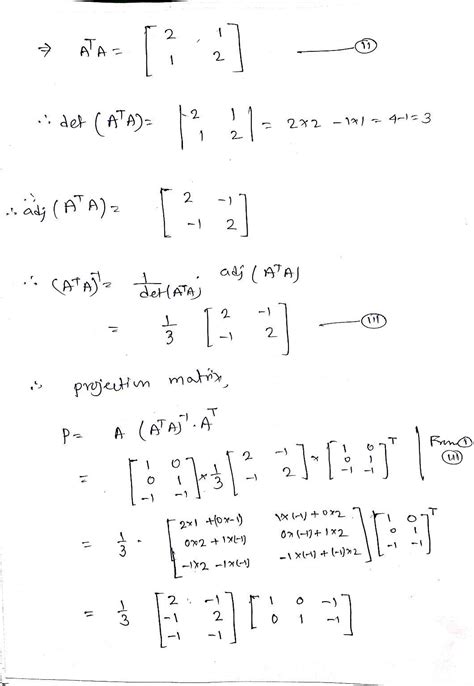 ⇒ AᵀA = [2 1; 1 2] —— (ii)
∴ det (AᵀA) = |2 1; 1 2| = 2×2 − 1×1 = 4−1 = 3
∴ adj (AᵀA) = [2 −1; −1 2]
∴ (AᵀA)⁻¹ = 1/det(AᵀA) adj (AᵀA)
= 1/3 [2 −1; −1 2] —— (iii)
∴ projection matrix,
P = A (AᵀA)⁻¹ · Aᵀ
= [1 0; 0 1; −1 −1] × 1/3 [2 −1; −1 2] × [1 0; 0 1; −1 −1]ᵀ | From (i) (iii)
= 1/3 · [2×1 + (0×−1) 1×(−1) + 0×2; 0×2 + 1×(−1) 0×(−1) + 1×2; −1×2 −1×(−1) −1×(−1) + (−1)×2] [1 0; 0 1; −1 −1]ᵀ
= 1/3 [2 −1; −1 2; −1 −1] [1 0 −1; 0 1 −1]